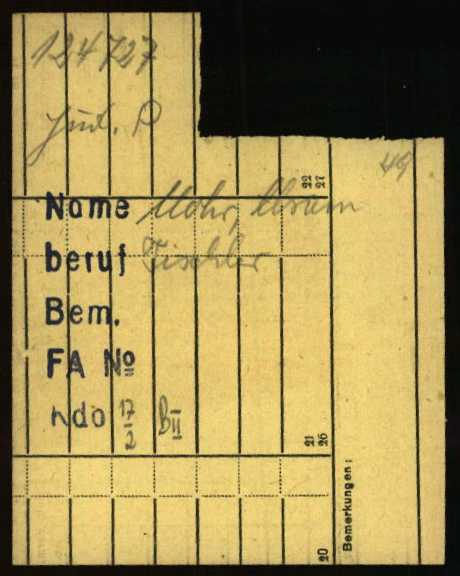 124727
Jud. P
49
22
27
Name Mohr, Abram
beruf Tischler
Bem.
FA No
ndo 17/2 BII
21
26
Bemerkungen:
20